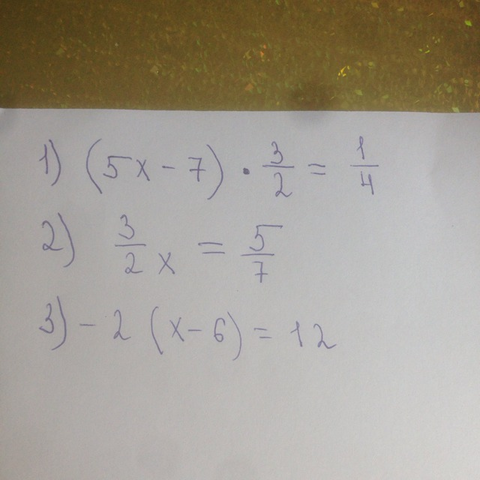 1) (5x-7) · 3/2 = 1/4
2) 3/2 x = 5/7
3) -2 (x-6) = 12